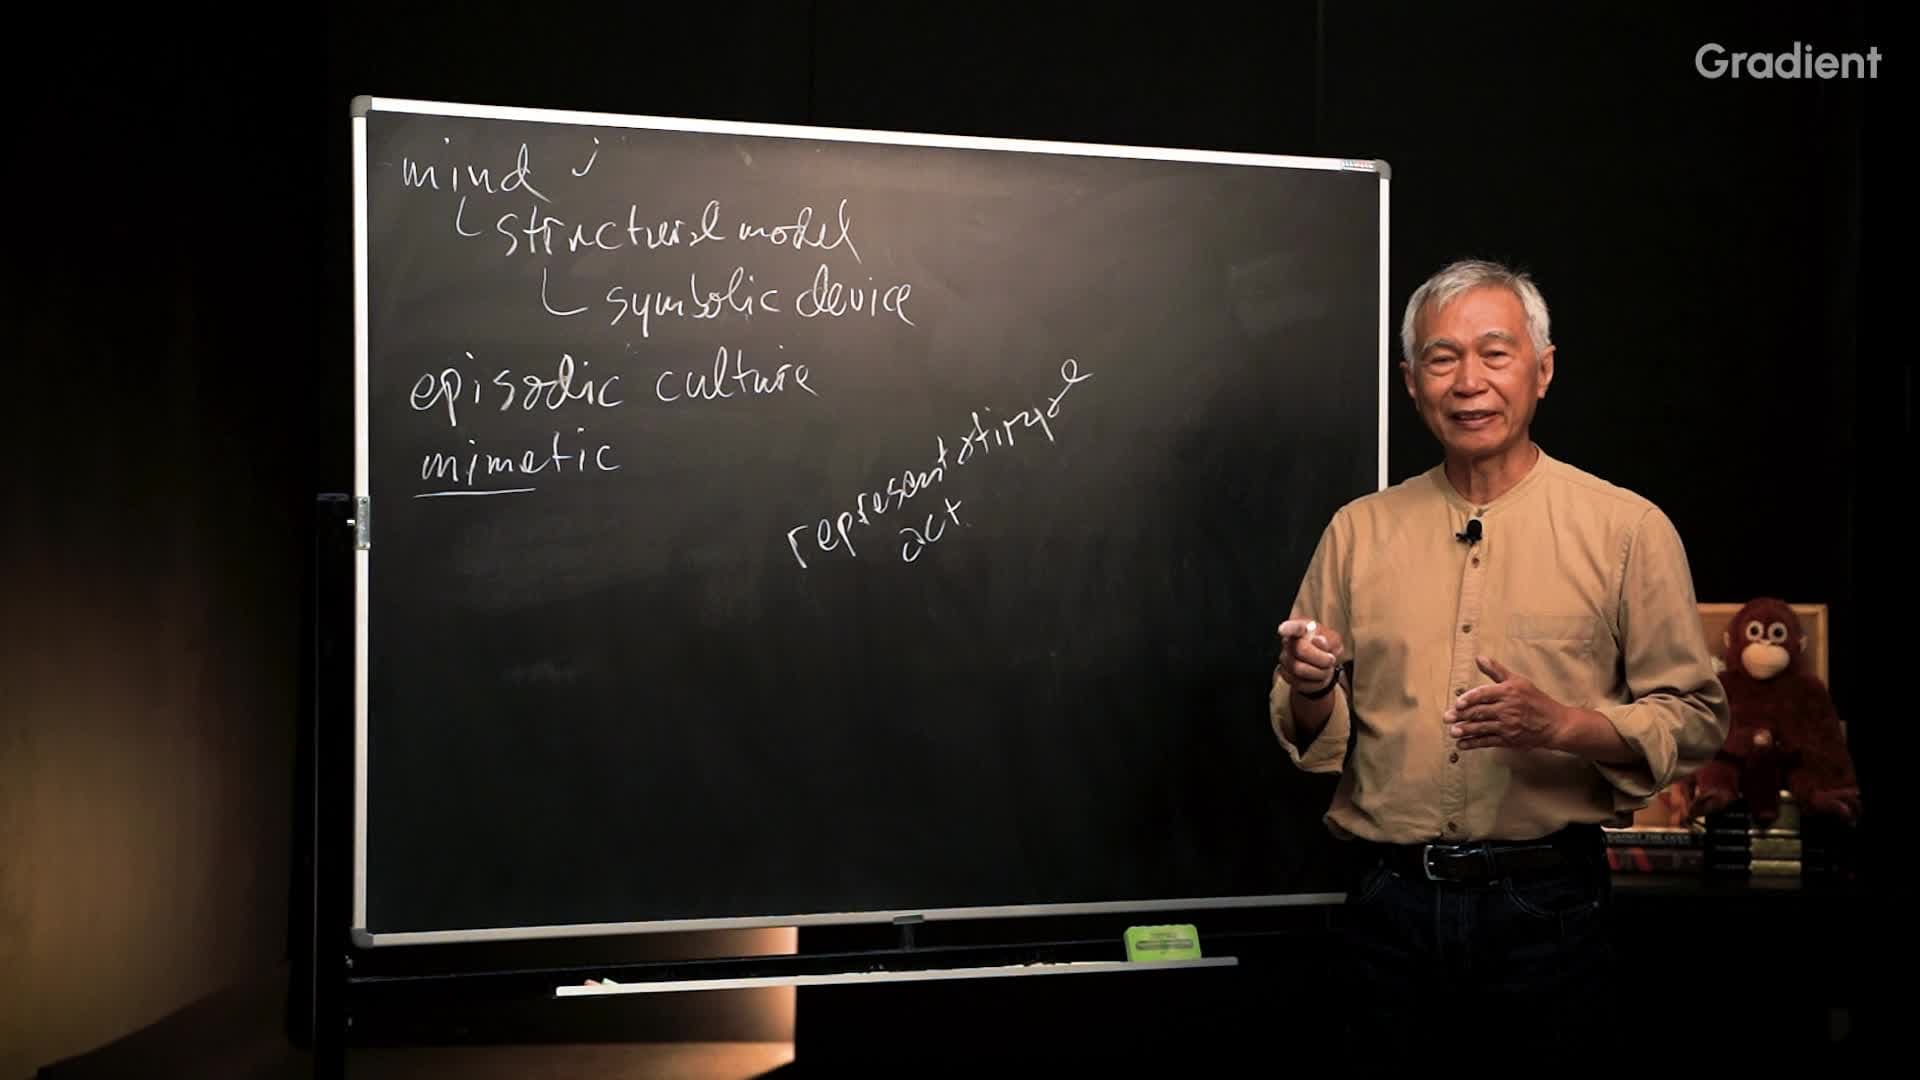 Gradient
mind
structural model
symbolic device
episodic culture
mimetic
representational
act